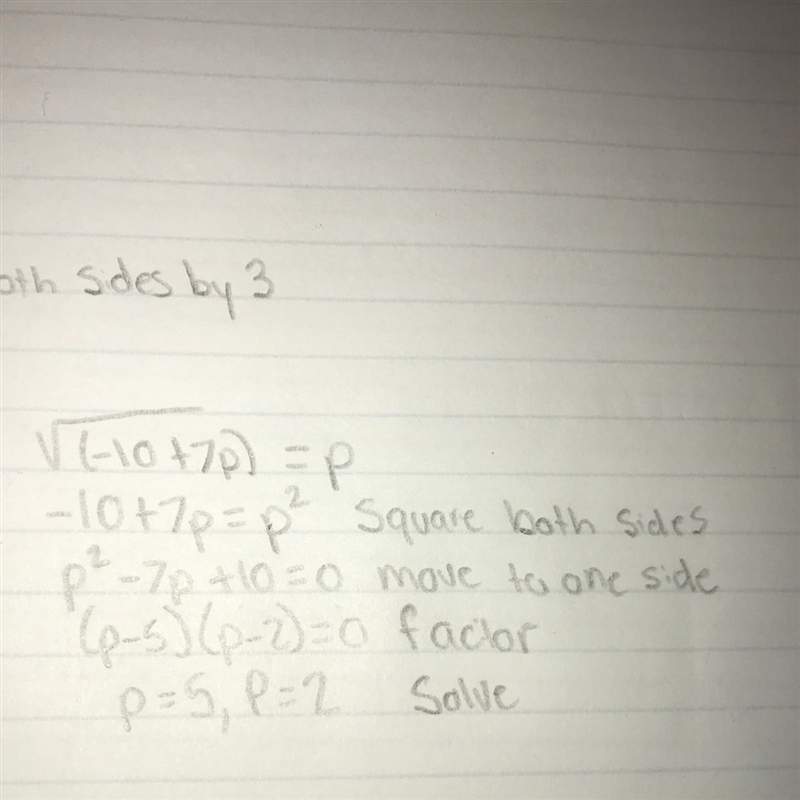 sides by 3
√(-10+7p) = p
-10+7p=p² Square both sides
p²-7p+10=0 move to one side
(p-5)(p-2)=0 factor
p=5, p=2 Solve